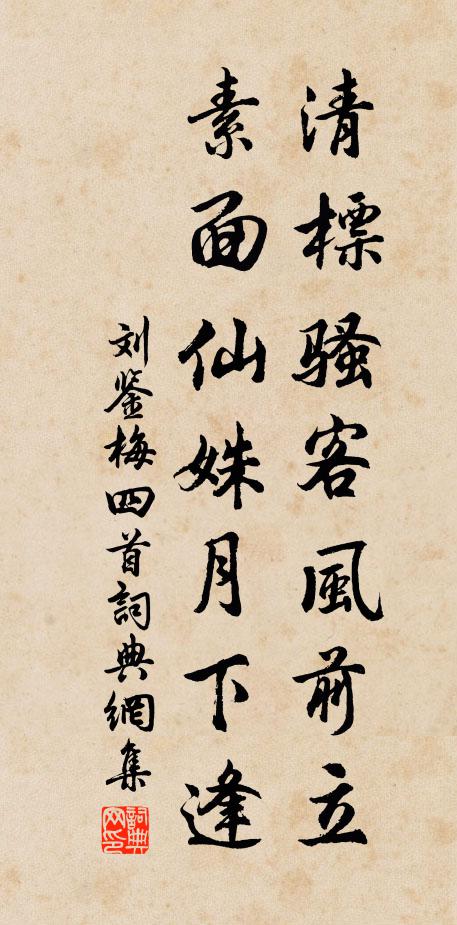 清標騷客風前立
素面仙姝月下逢
刘鉴梅四首詞典網集
詞典網印